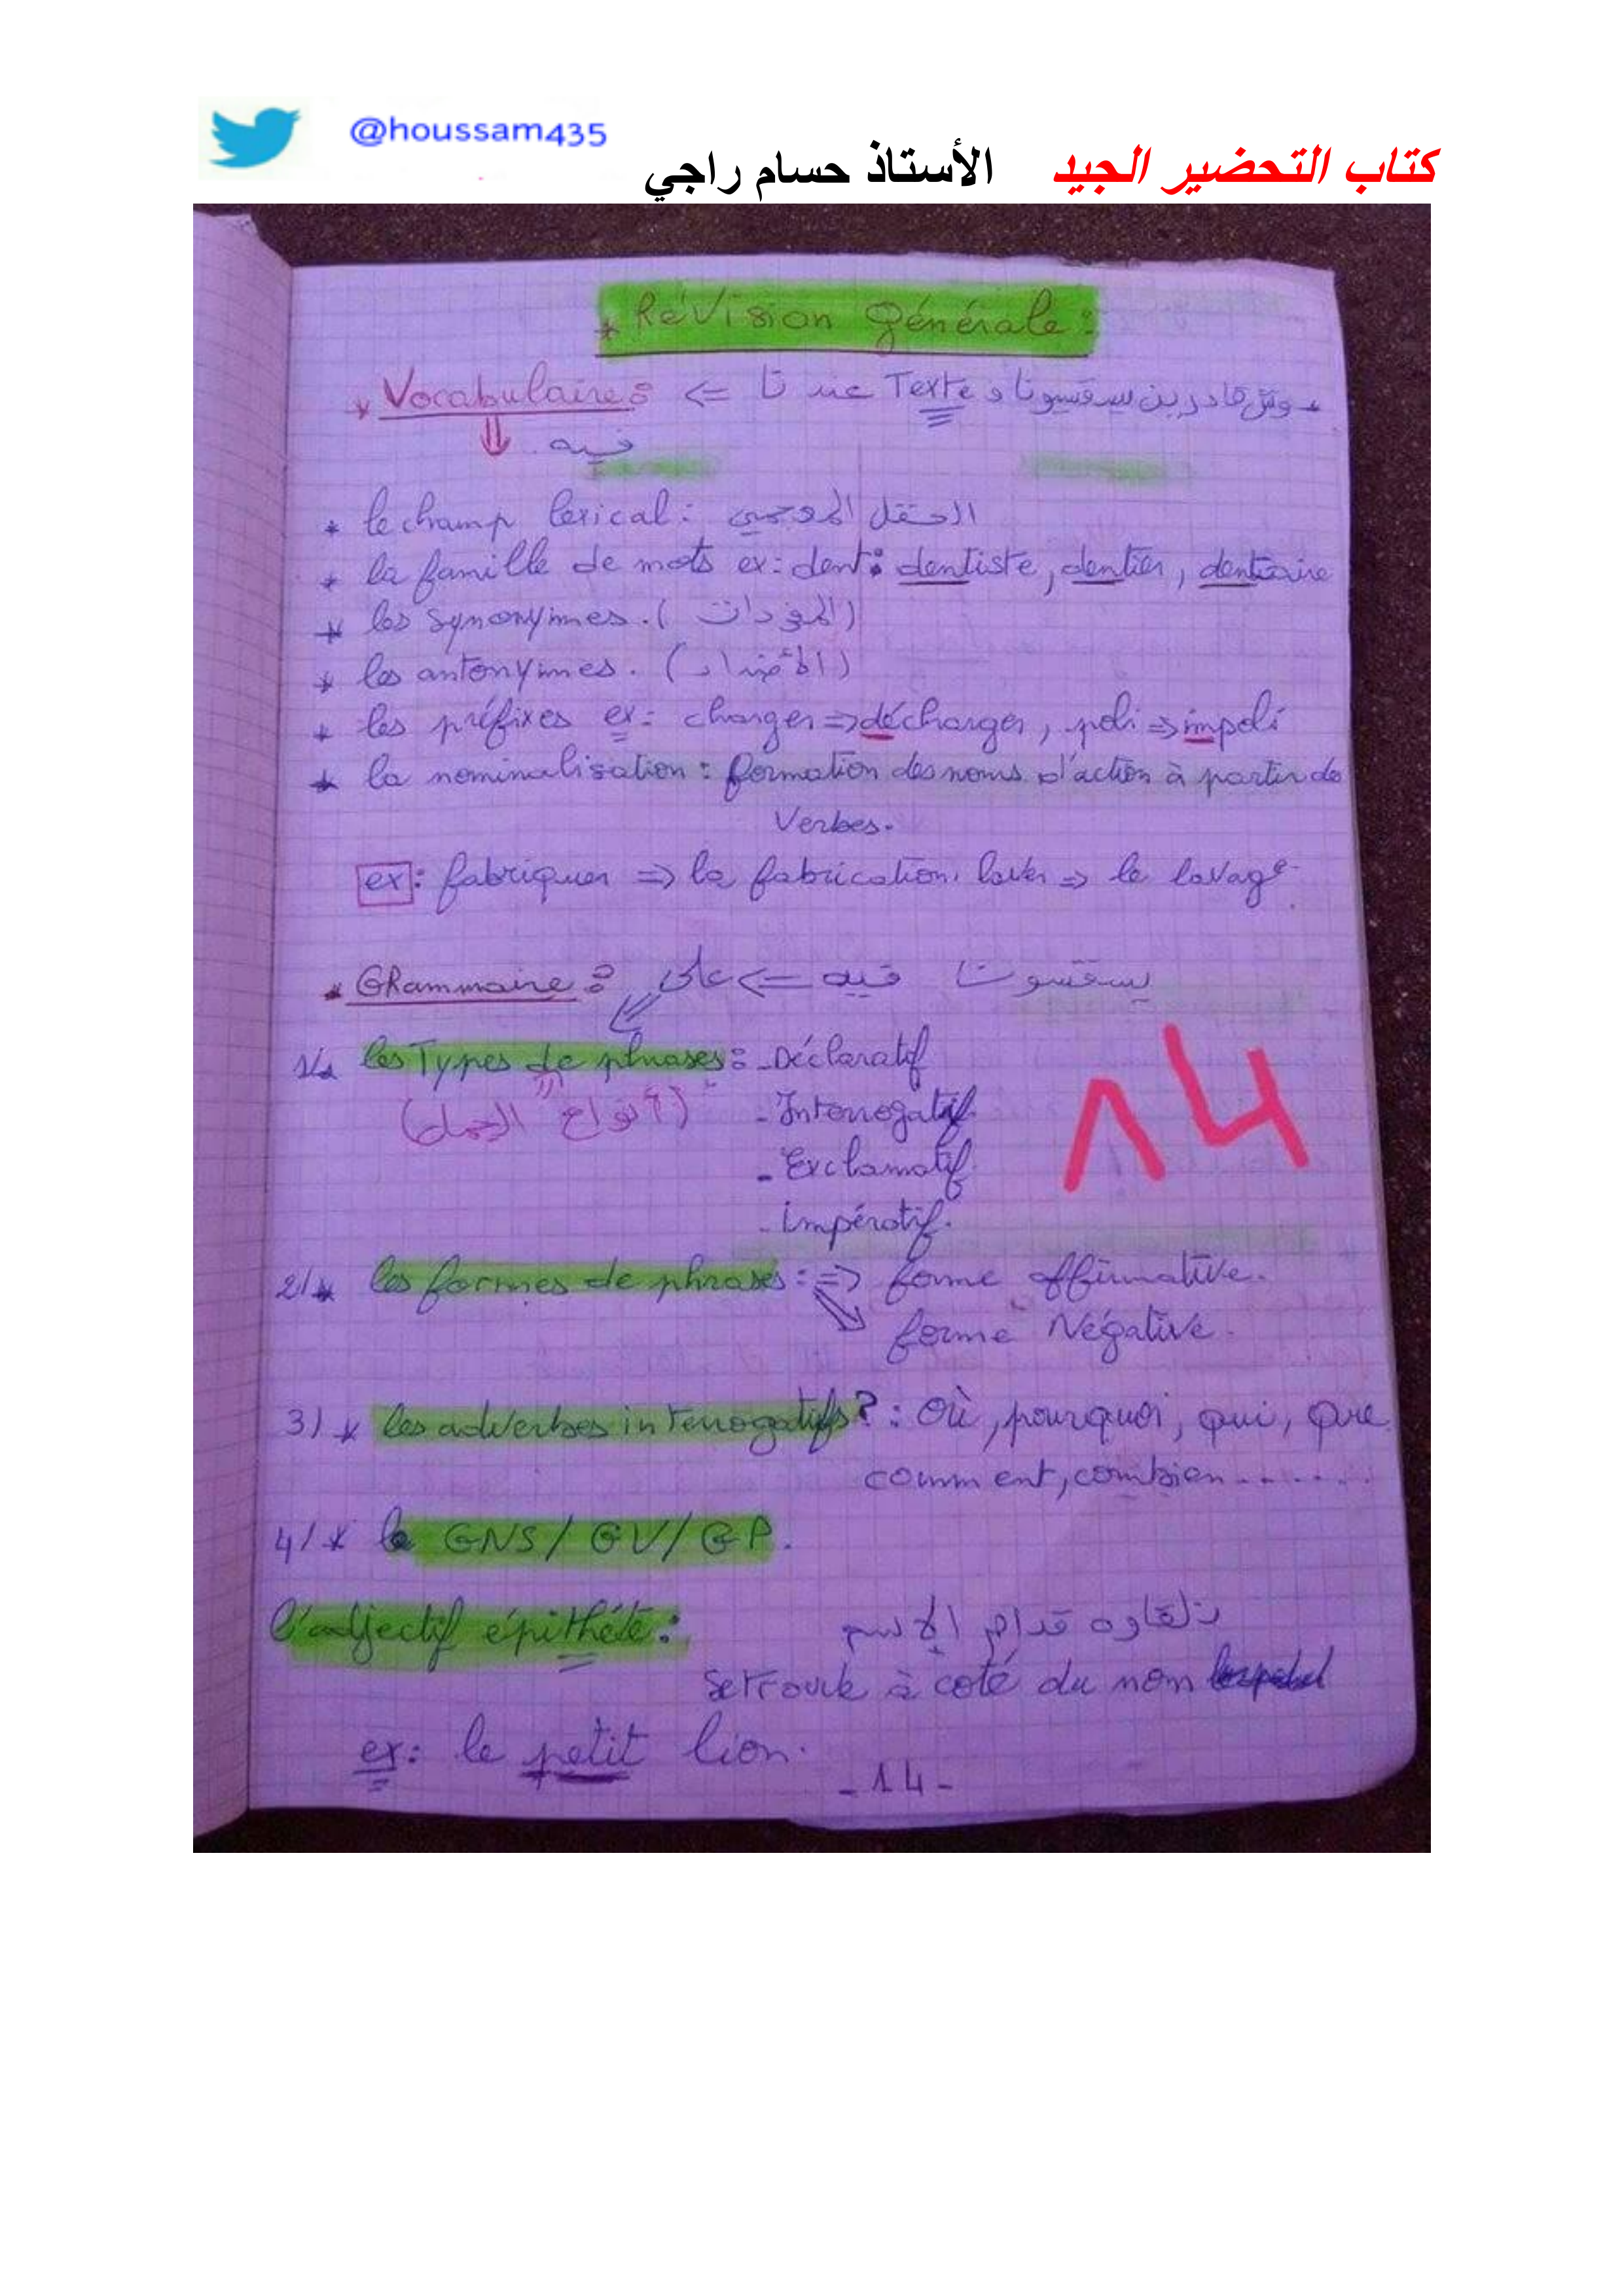 @houssam435
كتاب التحضير الجيد الأستاذ حسام راجي
* Révision Générale:
* Vocabulaire: <= عندنا Texte و
فيه
* le champ lexical: الحقل المعجمي
* la famille de mots ex: dent: dentiste, dentier, dentaire
* les synonymes. (المرادفات)
* les antonymes. (الأضداد)
* les préfixes ex: charger => décharger, poli => impoli
* la nominalisation: formation des noms d'action à partir de
Verbes.
ex: fabriquer => la fabrication, laver => le lavage.
* GRammaire: يسقسونا فيه => على
1/* les Types de phrases: - Déclaratif
(أنواع الجمل) - Interrogatif
- Exclamatif
- impératif.
14
2/* les formes de phrases: => forme affirmative.
forme Négative.
3/* les adverbes interrogatifs?: Où, pourquoi, qui, que
comment, combien.......
4/* le GNS / GV / GP.
l'adjectif épithéte: نلقاوه قدام الإسم
se trouve à coté du nom
ex: le petit lion.
-14-